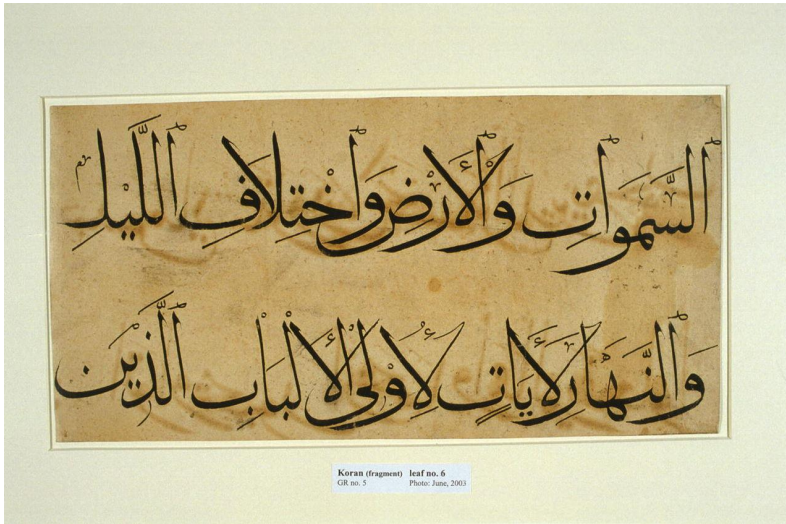 السَّمَوَاتِ وَالْأَرْضِ وَاخْتِلَافِ اللَّيْلِ
وَالنَّهَارِ لَآيَاتٍ لِأُولِي الْأَلْبَابِ الَّذِينَ
Koran (fragment) leaf no. 6
GR no. 5 Photo: June, 2003